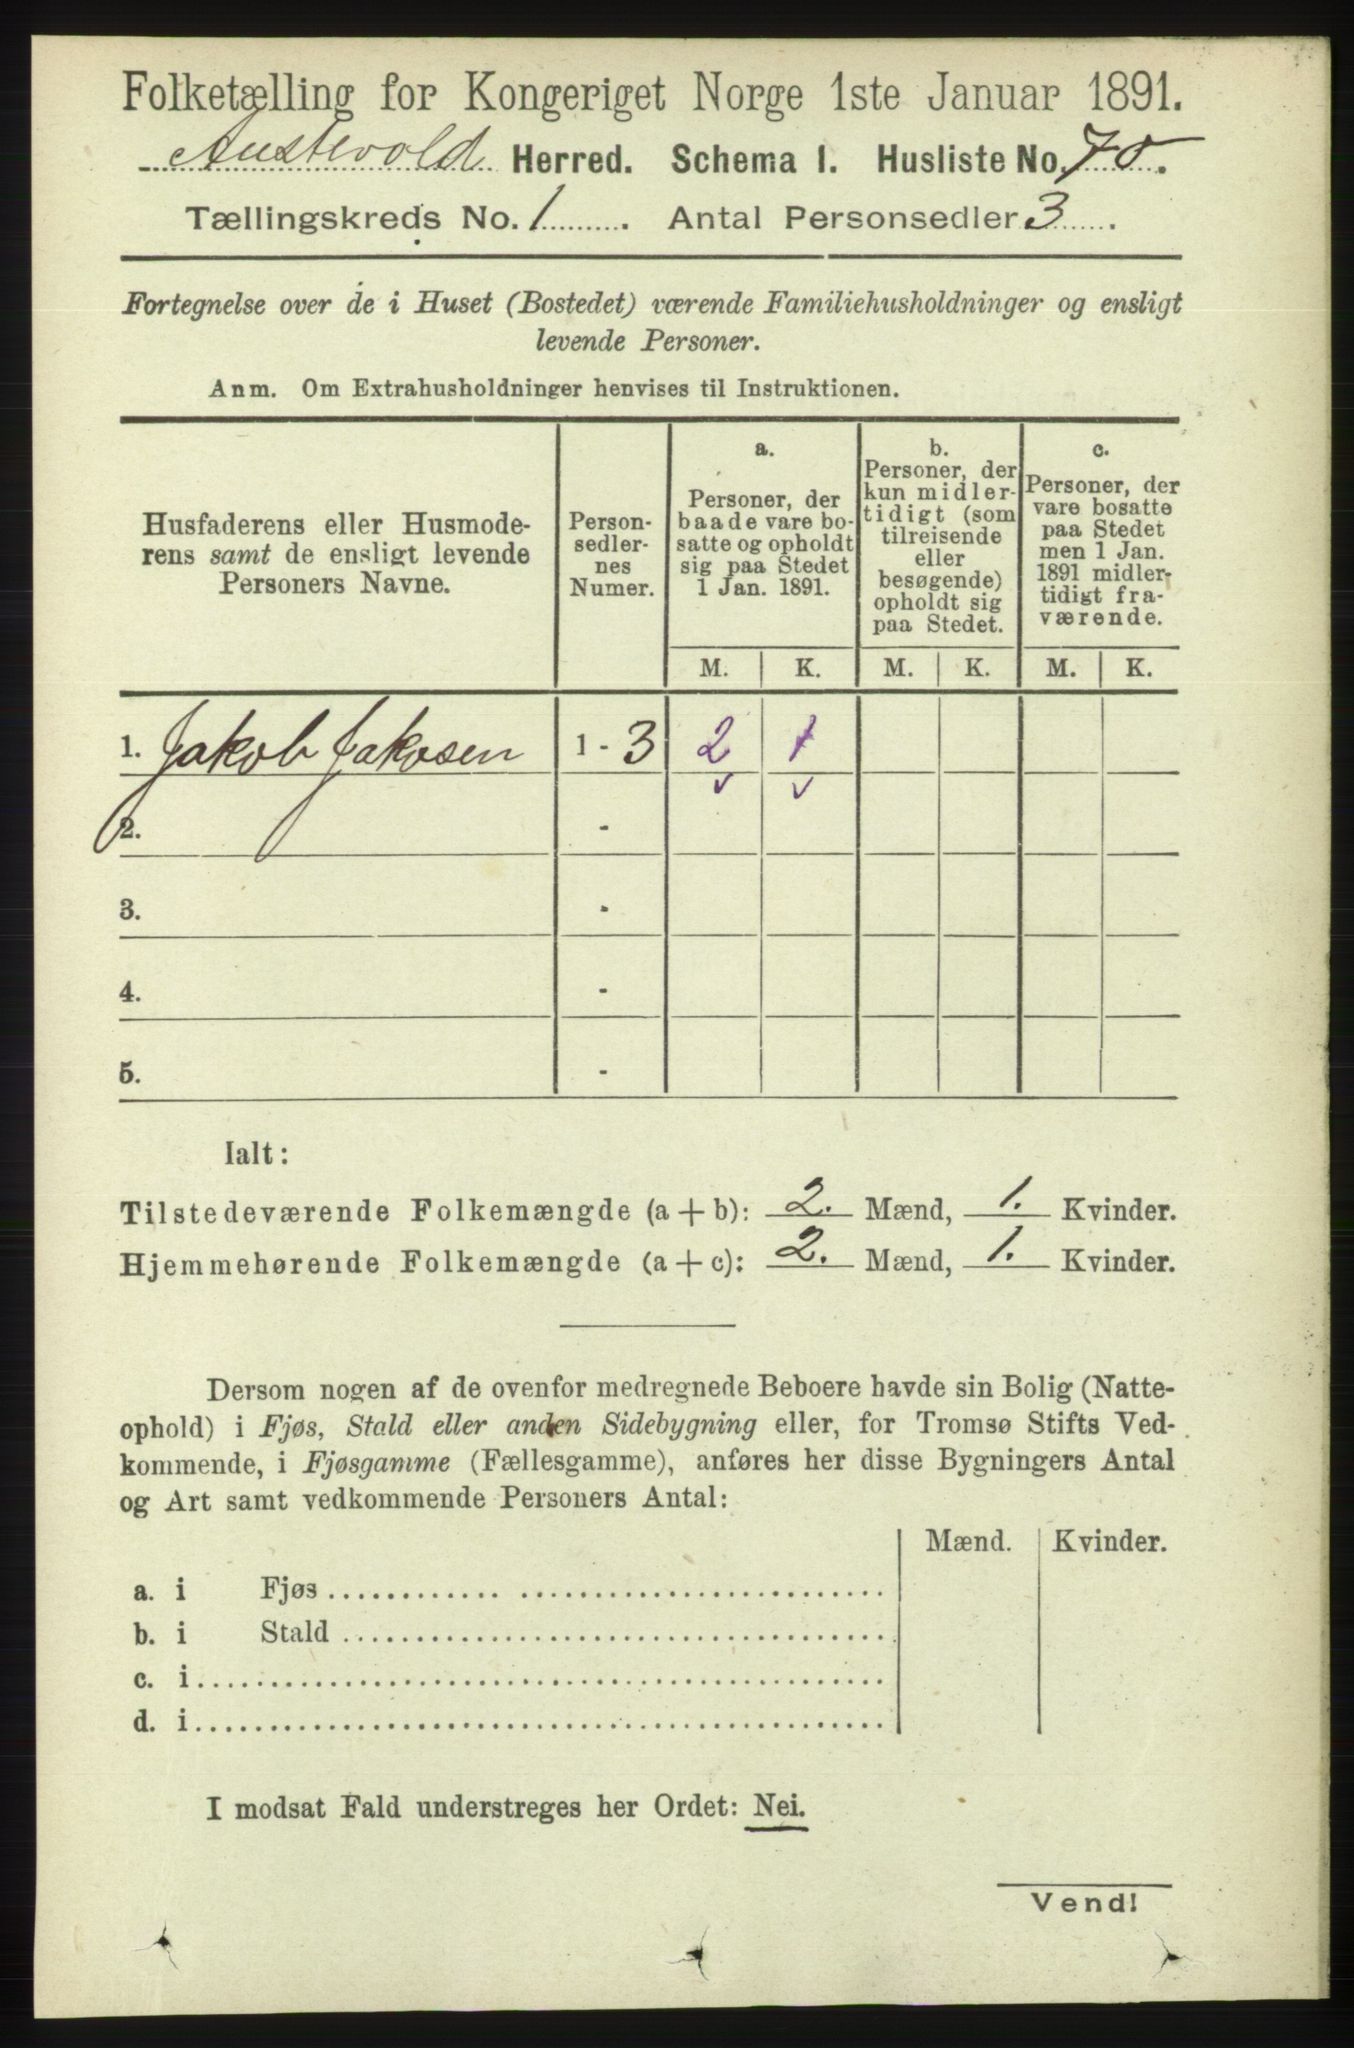 Folketælling for Kongeriget Norge 1ste Januar 1891.
Austevold Herred. Schema 1. Husliste No. 70.
Tællingskreds No. 1. Antal Personsedler 3.
Fortegnelse over de i Huset (Bostedet) værende Familiehusholdninger og ensligt
levende Personer.
Anm. Om Extrahusholdninger henvises til Instruktionen.
Husfaderens eller Husmode-
rens samt de ensligt levende
Personers Navne.
Person-
sedler-
nes
Numer.
a.
Personer, der
baade vare bo-
satte og opholdt
sig paa Stedet
1 Jan. 1891.
b.
Personer, der
kun midler-
tidigt (som
tilreisende
eller
besøgende)
opholdt sig
paa Stedet.
c.
Personer, der
vare bosatte
paa Stedet
men 1 Jan.
1891 midler-
tidigt fra-
værende.
M. K. M. K. M. K.
1. Jakob Jakosen 1 - 3 2 1
2. -
3. -
4. -
5. -
Ialt:
Tilstedeværende Folkemængde (a + b): 2. Mænd, 1. Kvinder.
Hjemmehørende Folkemængde (a + c): 2. Mænd, 1. Kvinder.
Dersom nogen af de ovenfor medregnede Beboere havde sin Bolig (Natte-
ophold) i Fjøs, Stald eller anden Sidebygning eller, for Tromsø Stifts Ved-
kommende, i Fjøsgamme (Fællesgamme), anføres her disse Bygningers Antal
og Art samt vedkommende Personers Antal:
Mænd. Kvinder.
a. i Fjøs
b. i Stald
c. i
d. i
I modsat Fald understreges her Ordet: Nei.
Vend!